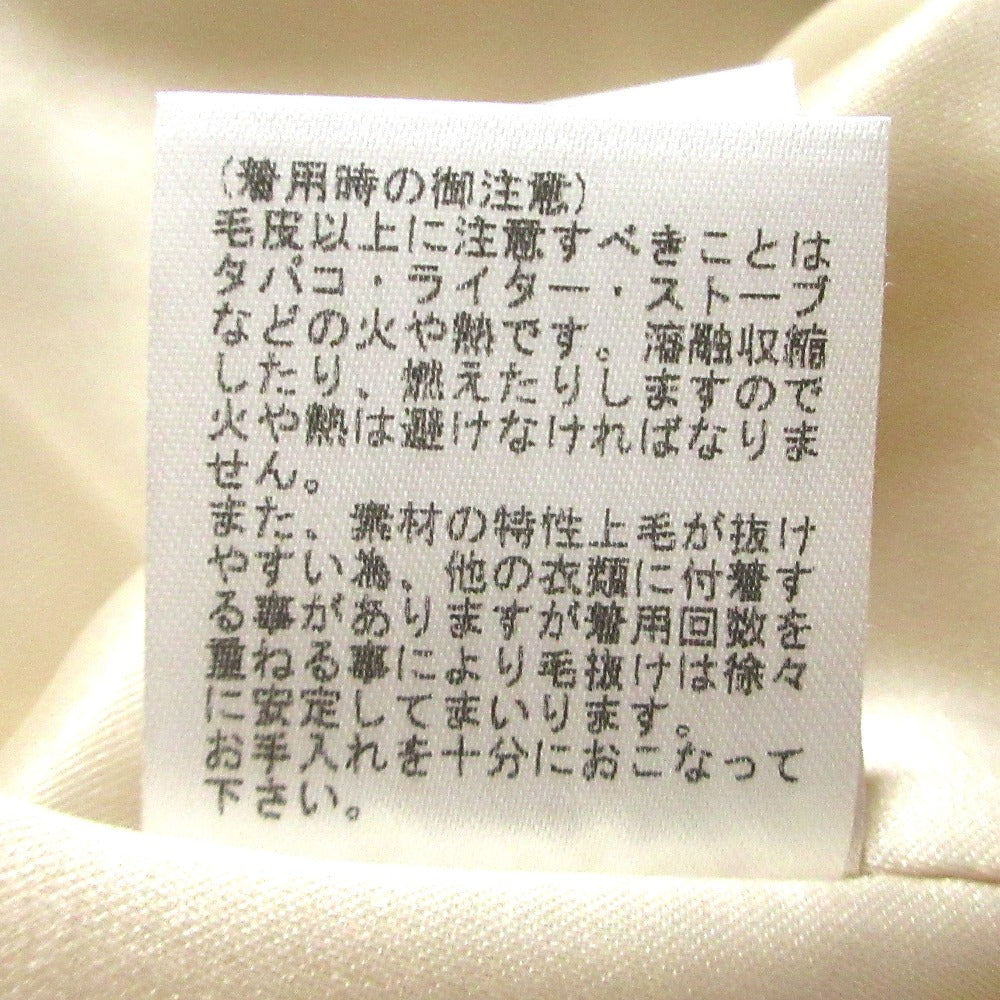 (着用時の御注意)
毛皮以上に注意すべきことは
タバコ・ライター・ストーブ
などの火や熱です。溶融収縮
したり、燃えたりしますので
火や熱は避けなければなりま
せん。
また、素材の特性上毛が抜け
やすい為、他の衣類に付着す
る事がありますが着用回数を
重ねる事により毛抜けは徐々
に安定してまいります。
お手入れを十分におこなって
下さい。